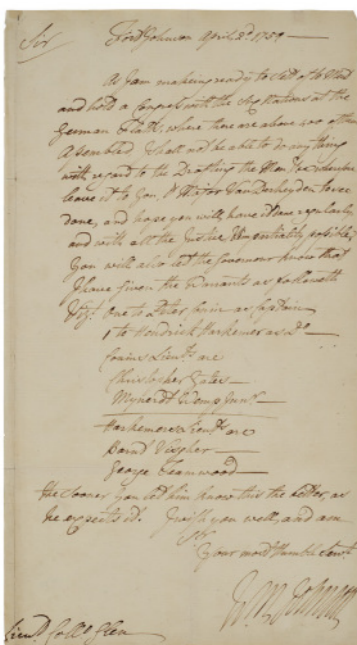 Sir
Fort Johnson April 2d. 1759 —
As I am making ready to Sett off to Morrow
and hold a Congress with the Nations at the
German Flatts, where there are above 400 of them
Assembled I shall not be able to do any thing
with regard to the Drafting the Men, I
leave it to You, & Major Van Derheyden to see
done, and hope you will have it done regularly
and with all the Justice & impartiality possible,
You will also let the Governour know that
I have given the Warrants as followeth
Vizt. One to Peter as Captain
1 to Hendrick Harkemer as Do
Lieuts. are
Christopher Yates —
Mynerdt Wemp Junr —
Harkemers Lieuts. are
Barnd. Vischer —
George —
the sooner you let him know this the better, as
he expects it. I wish you well, and am
Sir
Your most Humble Servt.
Wm Johnson
Lieut. Collo. Glen